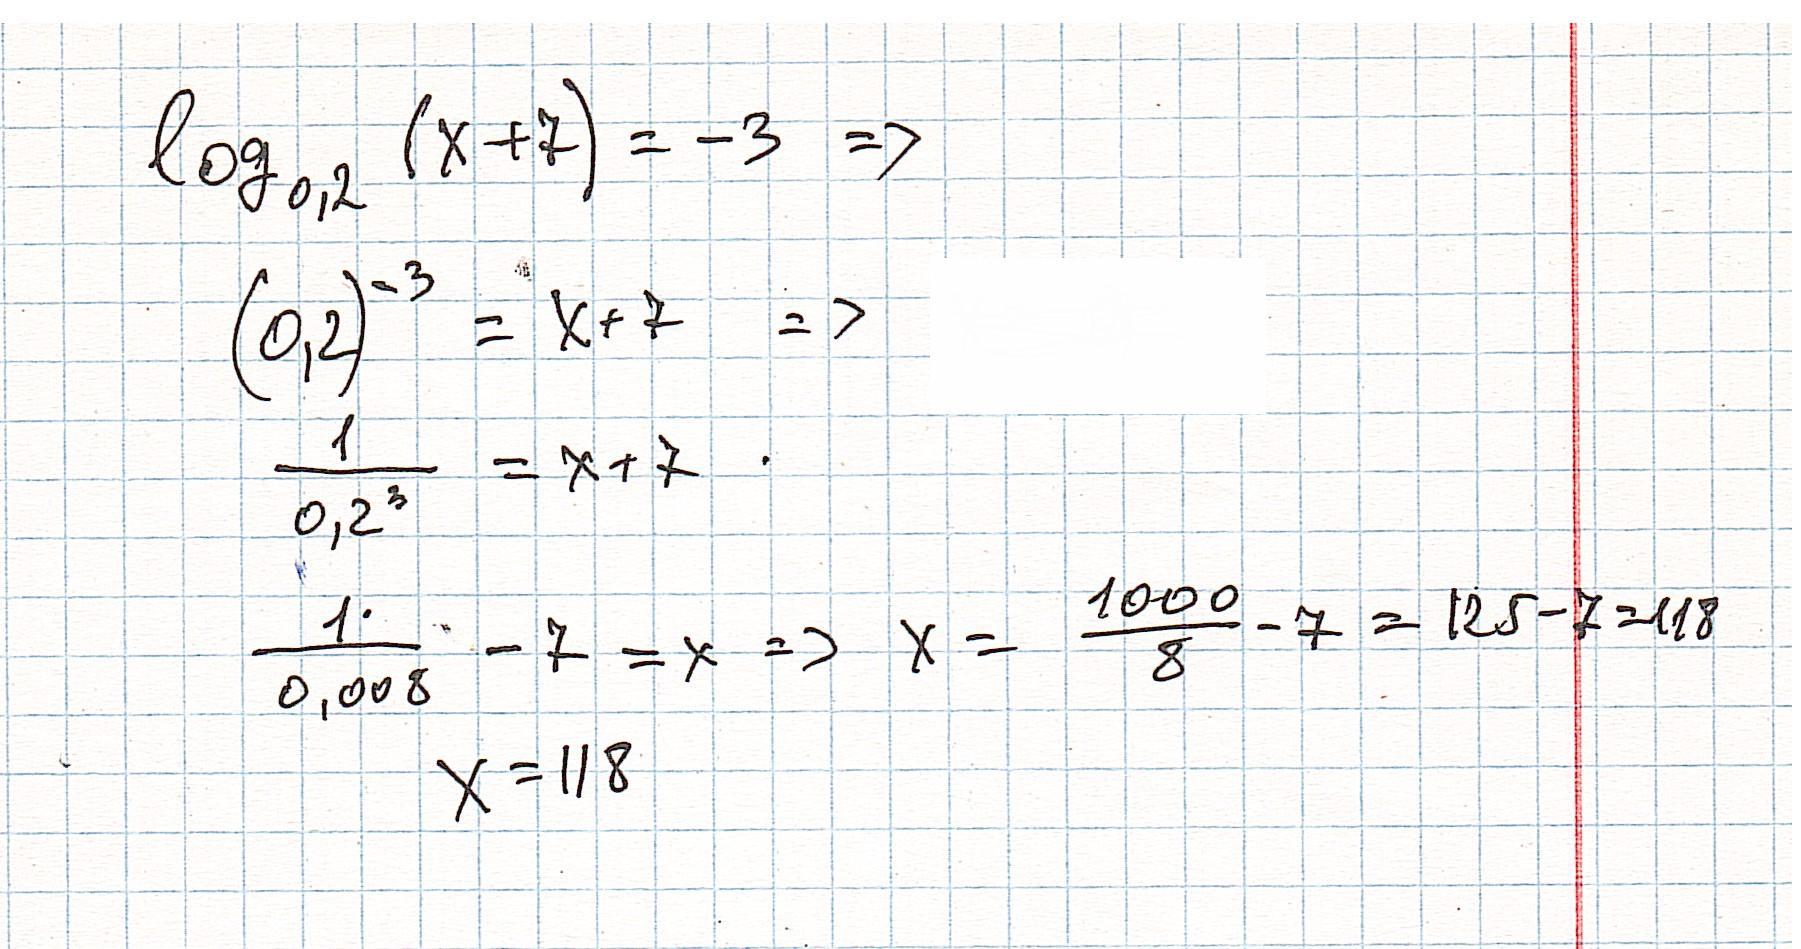 log₀,₂ (x+7) = -3 =>
(0,2)⁻³ = x+7 =>
1/0,2³ = x+7 .
1/0,008 - 7 = x => x = 1000/8 - 7 = 125-7=118
x=118